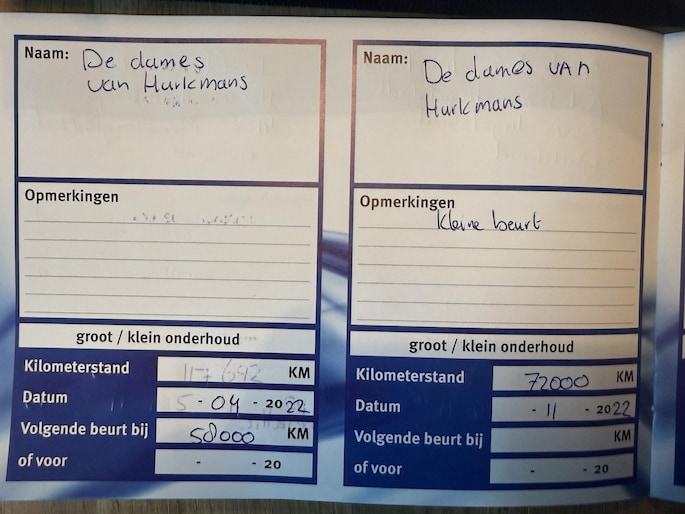 Naam: De dames
van Hurkmans
Opmerkingen
groot / klein onderhoud
Kilometerstand 117 692 KM
Datum 5 - 04 - 2022
Volgende beurt bij 58000 KM
of voor - - 20
Naam: De dames van
Hurkmans
Opmerkingen
Kleine beurt
groot / klein onderhoud
Kilometerstand 72000 KM
Datum - 11 - 2022
Volgende beurt bij KM
of voor - - 20